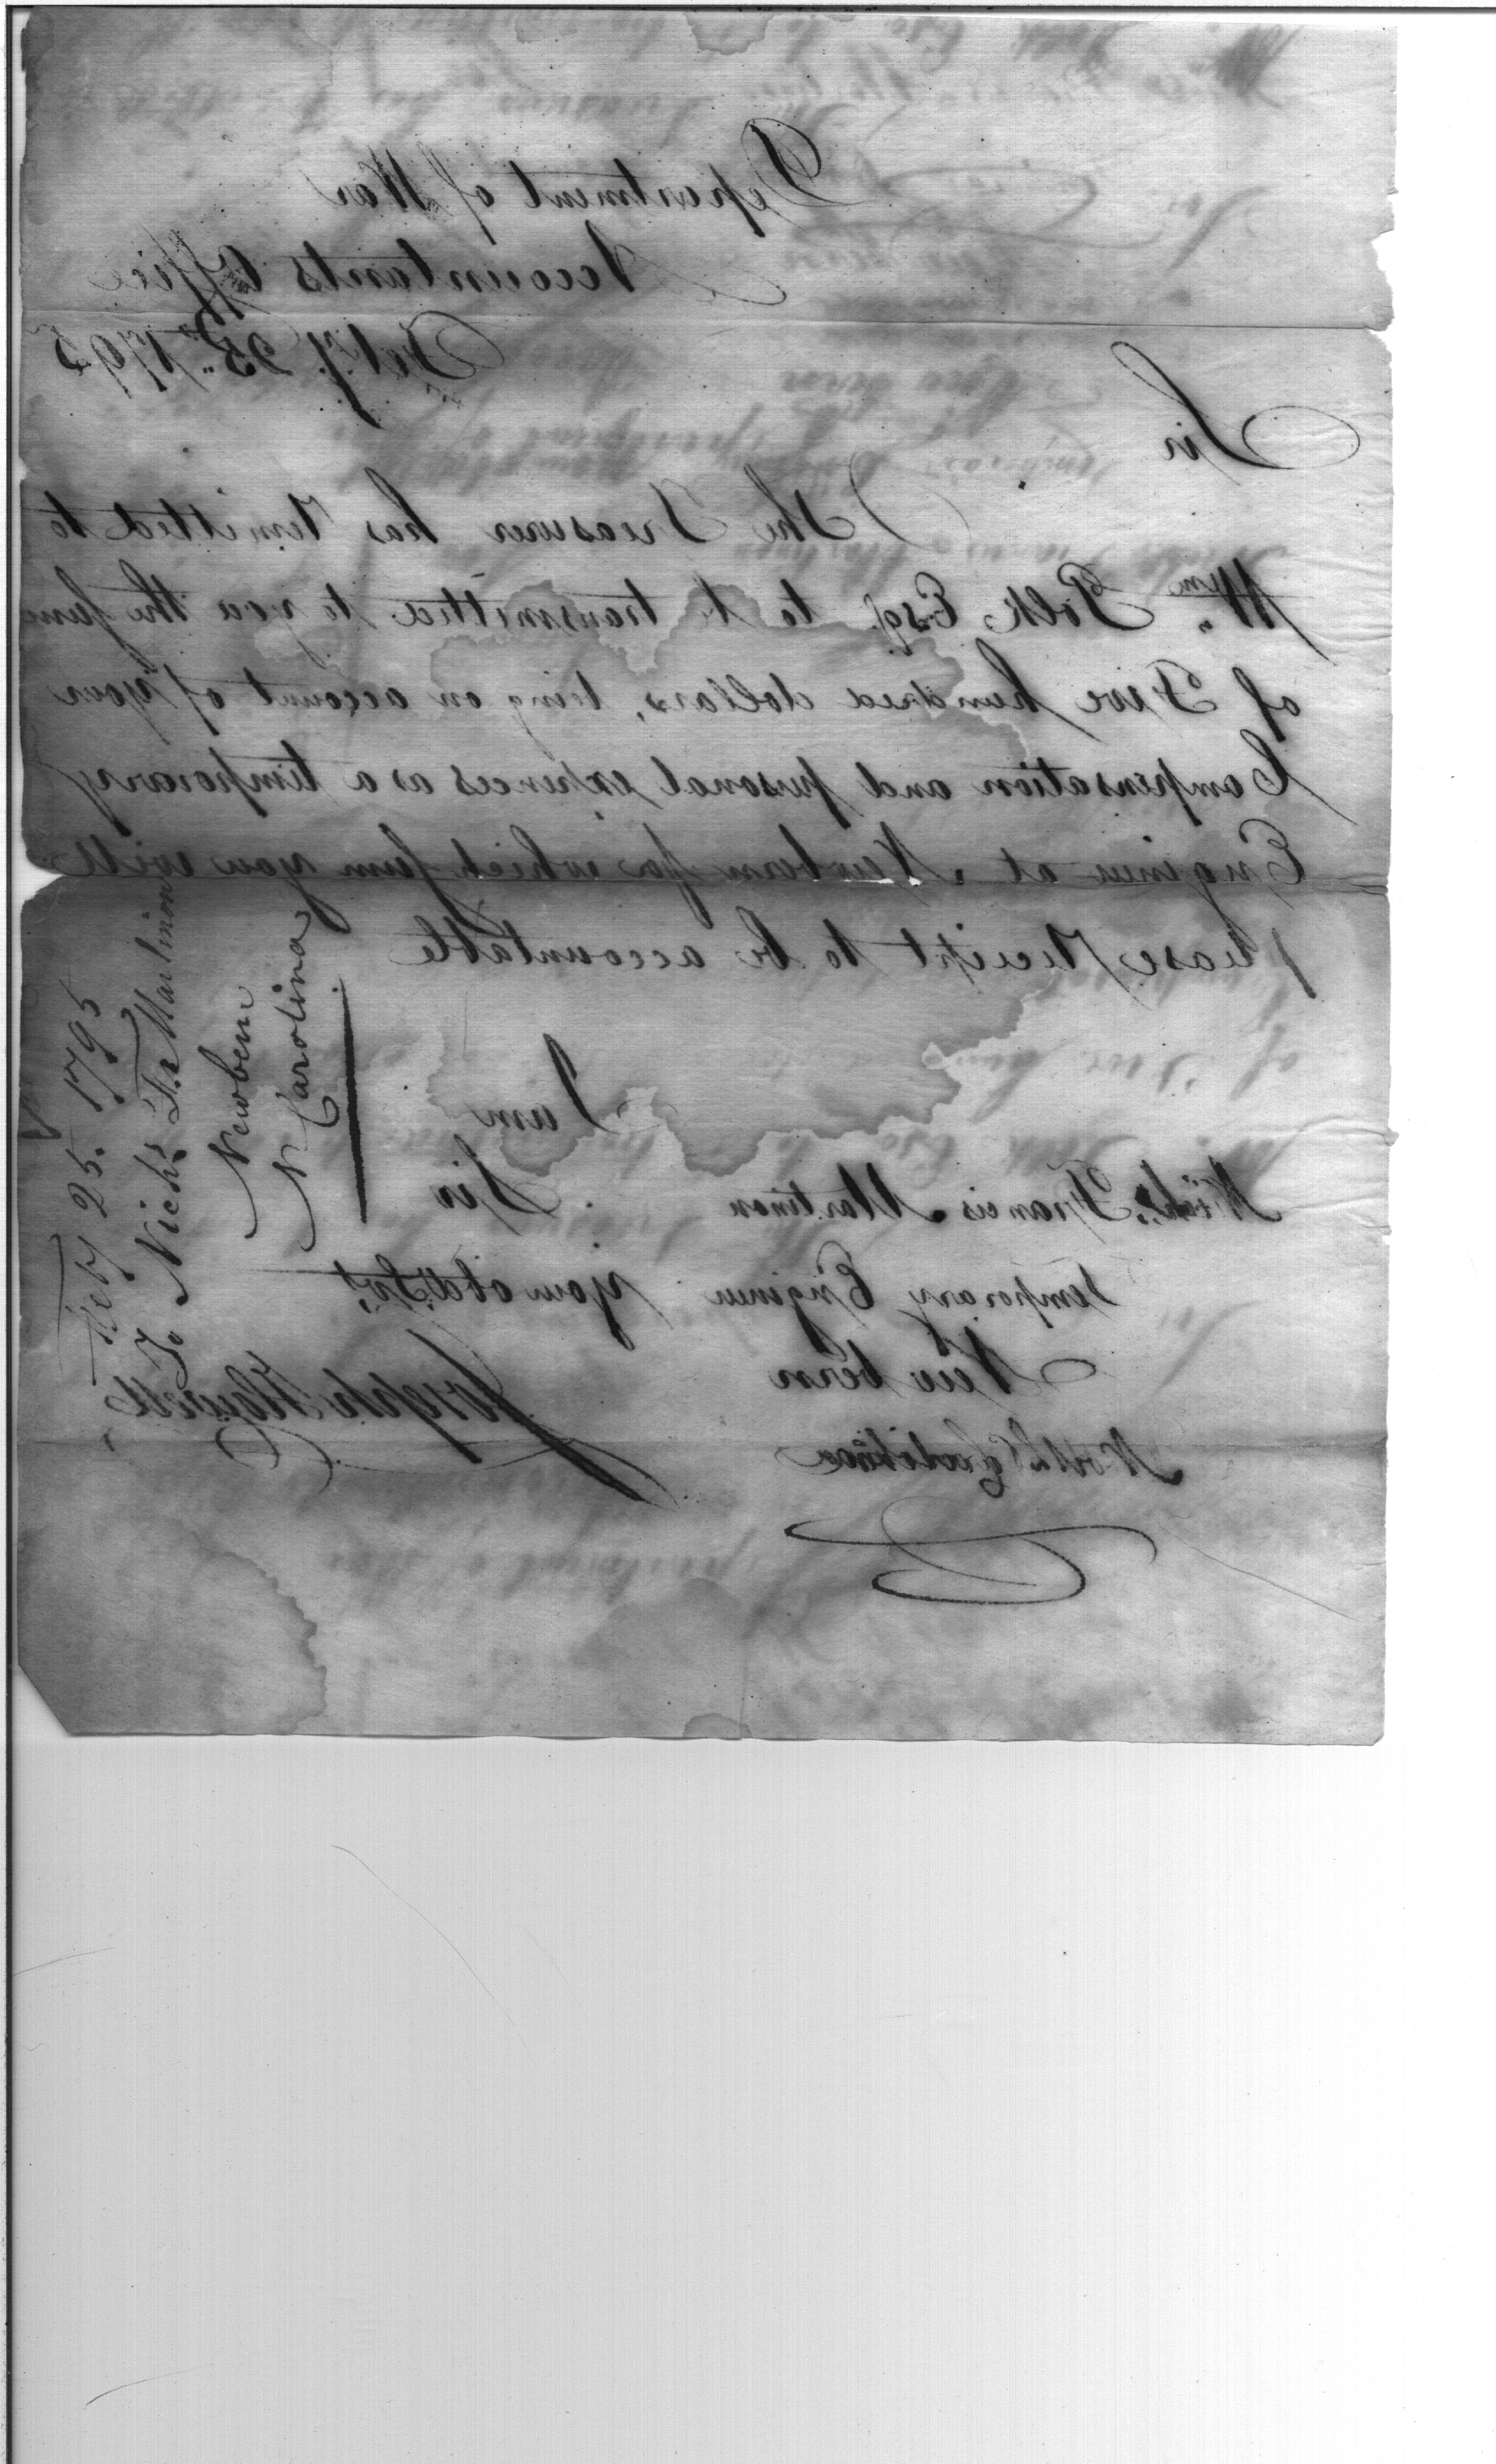 Department of War
Accountants Office
Feby. 23d. 1795
Sir
The Treasurer has remitted to
Wm. Polk Esqr. to be transmitted to you the sum
of Five hundred dollars, being on account of your
Compensation and personal expences as a temporary
Engineer at Newbern for which sum you will
please receipt to be accountable
I am
Sir
your obdt. Svt.
Joseph Howell
Nichs. Francis Martinon
Temporary Engineer
New bern
North Carolina
Feby 25. 1795
To Nichs Fs Martinon
Newbern
N Carolina